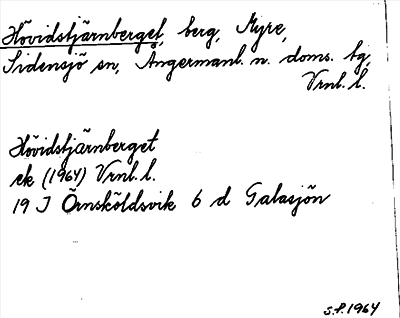 Hövidstjärnberget, berg, Myre,
Sidensjö sn, Ångermanl. n. doms. tg,
Vrnl. l.
Hövidstjärnberget
ek (1964) Vrnl. l.
19 J Örnsköldsvik 6 d Galasjön
S.P. 1964